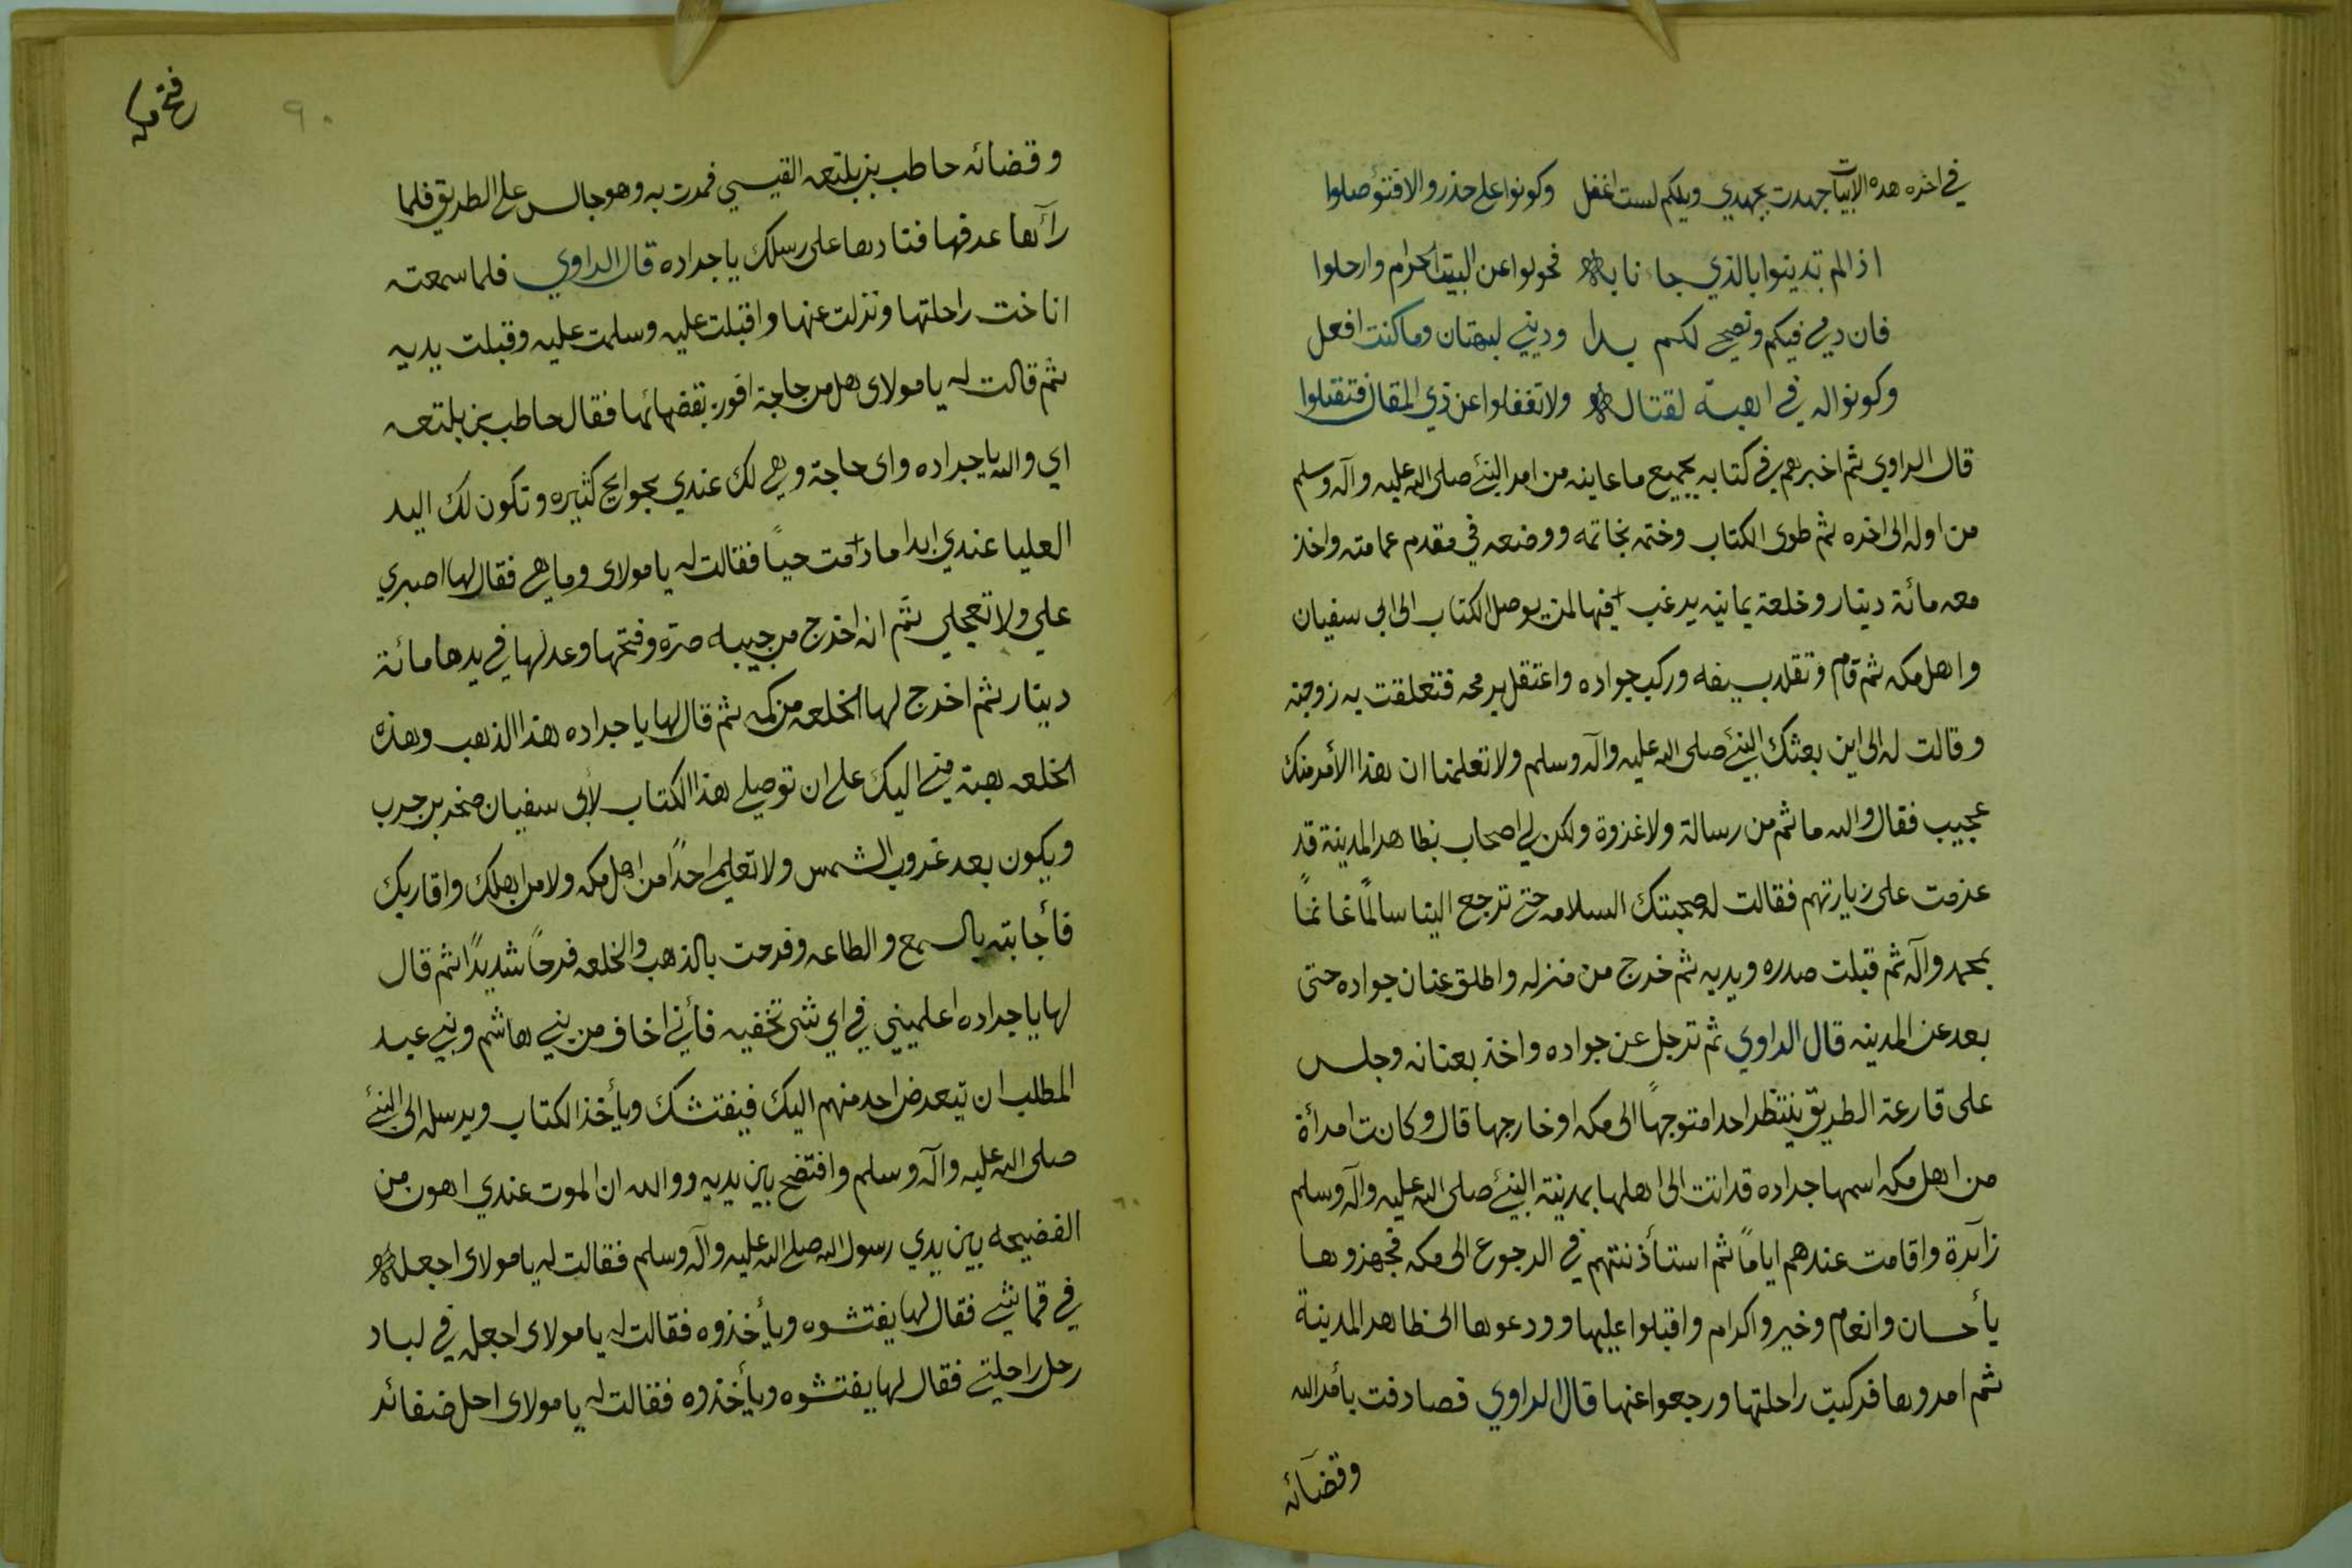 في اخره هده الابيات جهدت بجهدي ويلكم لست اغفل وكونوا على حذر والا فتؤصلوا
اذا لم تدينوا بالذي جاءنا به فحولوا عن البيت الحرام وارحلوا
فان دمي فيكم ونصحي لكم بدا وديني لبهتان وما كنت افعل
وكونوا له في اهبة لقتاله ولا تغفلوا عن ذي المقال فتقتلوا
قال الراوي ثم اخبرهم في كتابه بجميع ما عاينه من امر النبئ صلى الله عليه وآله وسلم
من اوله الى اخره ثم طوى الكتاب وختمه بخاتمه ووضعه في مقدم عمامته واخذ
معه مائة دينار وخلعة يمانيه يرغب فيها لمن يوصل الكتاب الى ابي سفيان
واهل مكه ثم قام وتقلد بسيفه وركب جواده واعتقل برمحه فتعلقت به زوجته
وقالت له الى اين بعثك النبئ صلى الله عليه وآله وسلم ولا تعلمنا ان هذا الأمر منك
عجيب فقال والله ما ثم من رسالة ولا غزوة ولكن لي اصحاب بظاهر المدينة قد
عزمت على زيارتهم فقالت له صحبتك السلامه حتى ترجع الينا سالمًا غانمًا
بمحمد وآله ثم قبلت صدره ويديه ثم خرج من منزله واطلق عنان جواده حتى
بعد عن المدينه قال الراوي ثم ترجل عن جواده واخذ بعنانه وجلس
على قارعة الطريق ينتظر احدا متوجهًا الى مكه او خارجها قال وكانت امرأة
من اهل مكه اسمها جراده قد اتت الى اهلها بمدينة النبئ صلى الله عليه وآله وسلم
زآئرة واقامت عندهم ايامًا ثم استأذنتهم في الرجوع الى مكه فجهزوها
بأحسان وانعام وخير واكرام واقبلوا عليها وودعوها الى ظاهر المدينة
ثم امروها فركبت راحلتها ورجعوا عنها قال الراوي فصادفت بأمر الله
وقضآئه
فتح مكه
٩٠
وقضائه حاطب بن بلتعه القيسي فمرت به وهو جالس على الطريق فلما
رآها عرفها فنادها على رسلك يا جراده قال الراوي فلما سمعته
اناخت راحلتها ونزلت عنها واقبلت عليه وسلمت عليه وقبلت يديه
ثم قالت له يا مولاى هل من حاجة افوز بقضائها فقال حاطب بن بلتعه
اي والله يا جراده واى حاجة وهي لك عندي بحوايج كثيره وتكون لك اليد
العليا عندي ابدا ما دامت حيًا فقالت له يا مولاى وما هي فقال لها اصبري
علي ولا تعجلي ثم انه اخرج من جيبه صرة وفتحها وعد لها في يدها مائة
دينار ثم اخرج لها الخلعه من كمه ثم قال لها يا جراده هذا الذهب وهذه
الخلعه هبة مني اليك على ان توصلي هذا الكتاب لأبى سفيان صخر بن حرب
ويكون بعد غروب الشمس ولا تعلمي احدًا من اهل مكه ولا من اهلك واقاربك
فأجابته بالسمع والطاعه وفرحت بالذهب والخلعه فرحًا شديدًا ثم قال
لها يا جراده اعلميني في اي شى تخفيه فأني اخاف من بني هاشم وبني عبد
المطلب ان يتعرض احد منهم اليك فيفتشك ويأخذ الكتاب ويرسله الى النبئ
صلى الله عليه وآله وسلم وافتضح بين يديه ووالله ان الموت عندي اهون من
الفضيحه بين يدي رسول الله صلى الله عليه وآله وسلم فقالت له يا مولاى اجعله
في قماشي فقال لها يفتشوه ويأخذوه فقالت له يا مولاى اجعله في لباد
رحل راحلتي فقال لها يفتشوه ويأخذوه فقالت له يا مولاى احل ضفائر